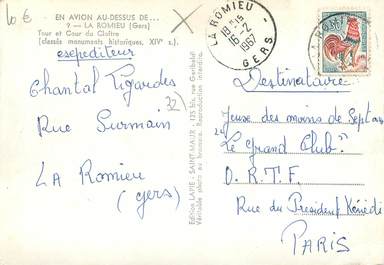 10 €
EN AVION AU-DESSUS DE...
9. — LA ROMIEU (Gers)
Tour et Cour du Cloître
(classés monuments historiques, XIVe s.).
esepéditeur
Chantal
(32)
Rue Surmain
LA Romieu
(gers)
Edition LAPIE - SAINT-MAUR - 125 bis, rue Garibaldi
Véritable photo au bromure. Reproduction interdite.
LA ROMIEU
18H15
16-2
1967
GERS
LA ROMI
Destinataire
Jeuse des moins de Sept ans
"Le Grand Club"
O.R.T.F.
Rue du President Kénédi
PARIS